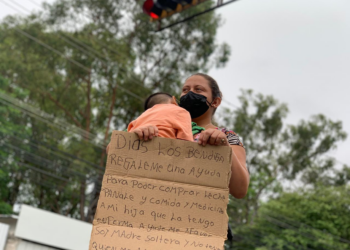 Dios Los Bendiga
REGALEME Una Ayuda
Para Poder comprar leche
Panales y comida y Medicina
A mi hijo que Lo tengo
enfermo Ayudeme
Soy Madre soltera y No